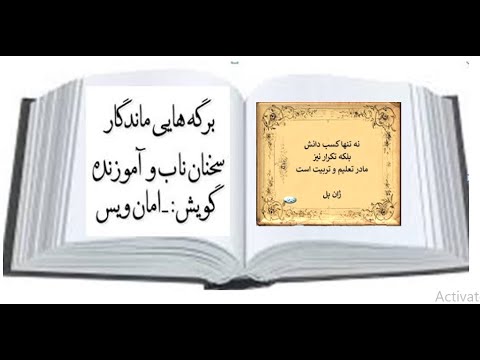 برگه هایی ماندگار
سخنان ناب و آموزنده
گویش:-امان ویس
نه تنها کسب دانش
بلکه تکرار نیز
مادر تعلیم و تربیت است
ژان بل
Activat